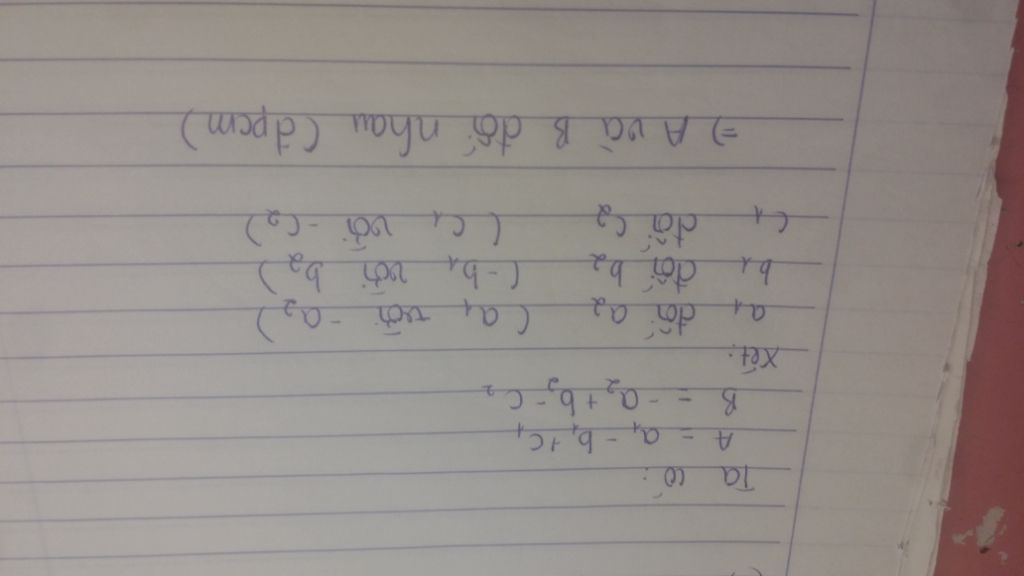 Ta có:
A = a₁ - b₁ + c₁
B = -a₂ + b₂ - c₂
Xét:
a₁ đối a₂ (a₁ với -a₂)
b₁ đối b₂ (-b₁ với b₂)
c₁ đối c₂ (c₁ với -c₂)
=) A và B đối nhau (đpcm)